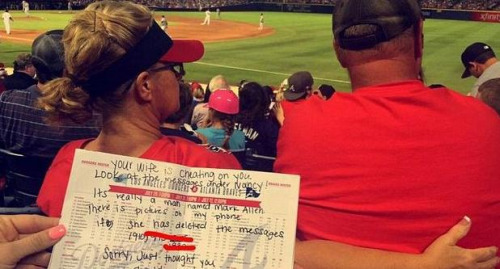 YOUR WIFE IS CHEATING ON YOU
LOOK AT THE MESSAGES UNDER NANCY!
LOS ANGELES ATLANTA BRAVES
Its really a man named Mark Allen
There is pictures on my phone
she has deleted the messages
Sorry, Just thought you